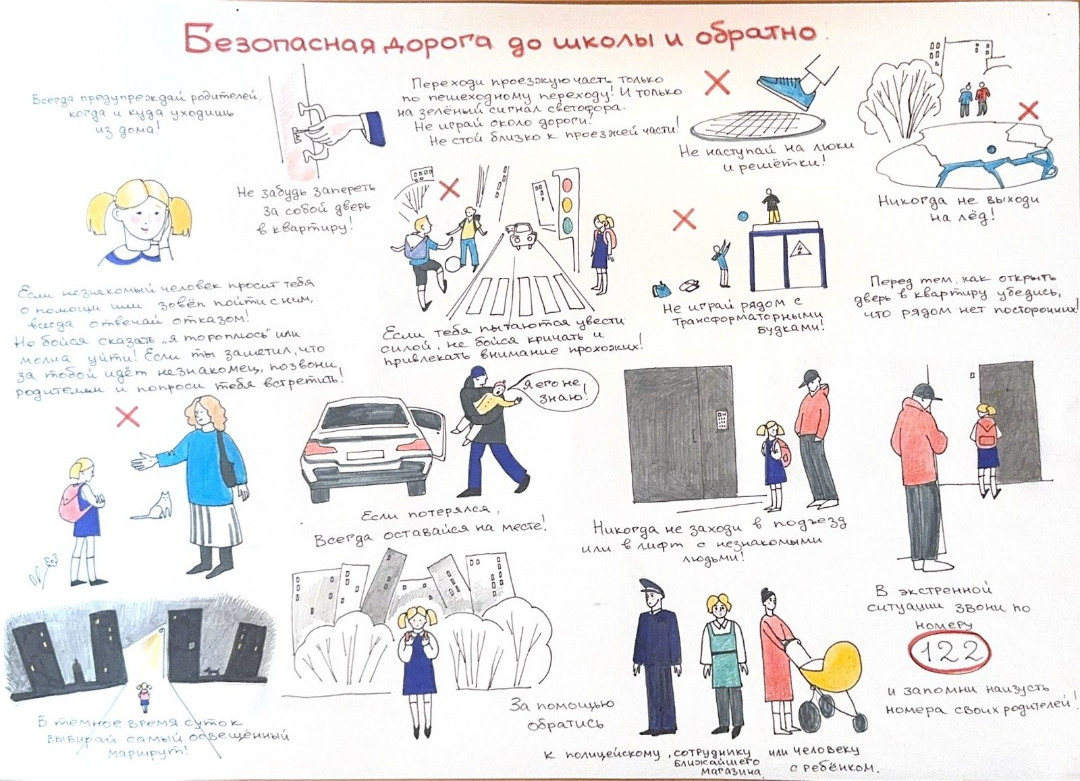 Безопасная дорога до школы и обратно
Всегда предупреждай родителей,
когда и куда уходишь
из дома!
Не забудь запереть
за собой дверь
в квартиру!
Переходи проезжую часть только
по пешеходному переходу! И только
на зелёный сигнал светофора.
Не играй около дороги!
Не стой близко к проезжей части!
Не наступай на люки
и решётки!
Никогда не выходи
на лёд!
Если незнакомый человек просит тебя
о помощи или зовёт пойти с ним,
всегда отвечай отказом!
Не бойся сказать „я тороплюсь" или
молча уйти! Если ты заметил, что
за тобой идёт незнакомец, позвони
родителям и попроси тебя встретить!
Если тебя пытаются увести
силой, не бойся кричать и
привлекать внимание прохожих!
Не играй рядом с
трансформаторными
будками!
Перед тем, как открыть
дверь в квартиру убедись,
что рядом нет посторонних!
Я его не
знаю!
Если потерялся,
Всегда оставайся на месте!
Никогда не заходи в подъезд
или в лифт с незнакомыми
людьми!
В тёмное время суток
выбирай самый освещённый
маршрут!
За помощью
обратись
к полицейскому, сотруднику
ближайшего
магазина,
или человеку
с ребёнком.
В экстренной
ситуации звони по
номеру
122
и запомни наизусть
номера своих родителей!